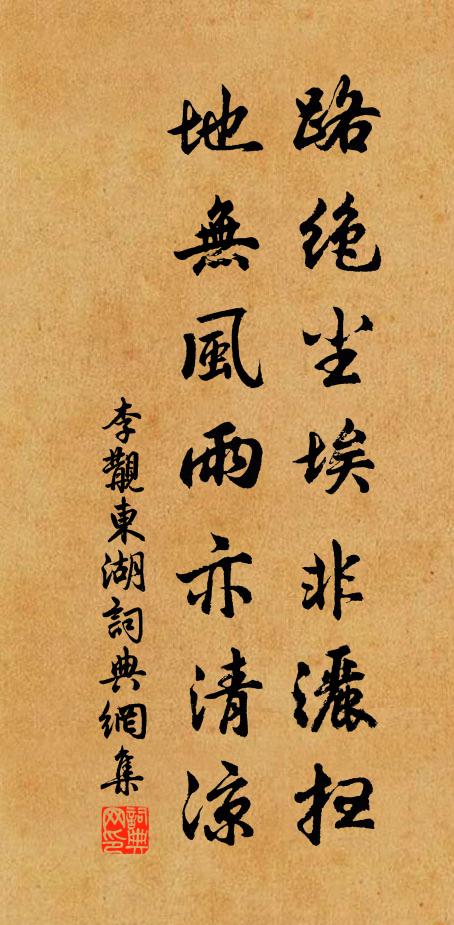 路絶尘埃非灑扫
地無風雨亦清涼
李覯東湖詞典網集
詞典网印